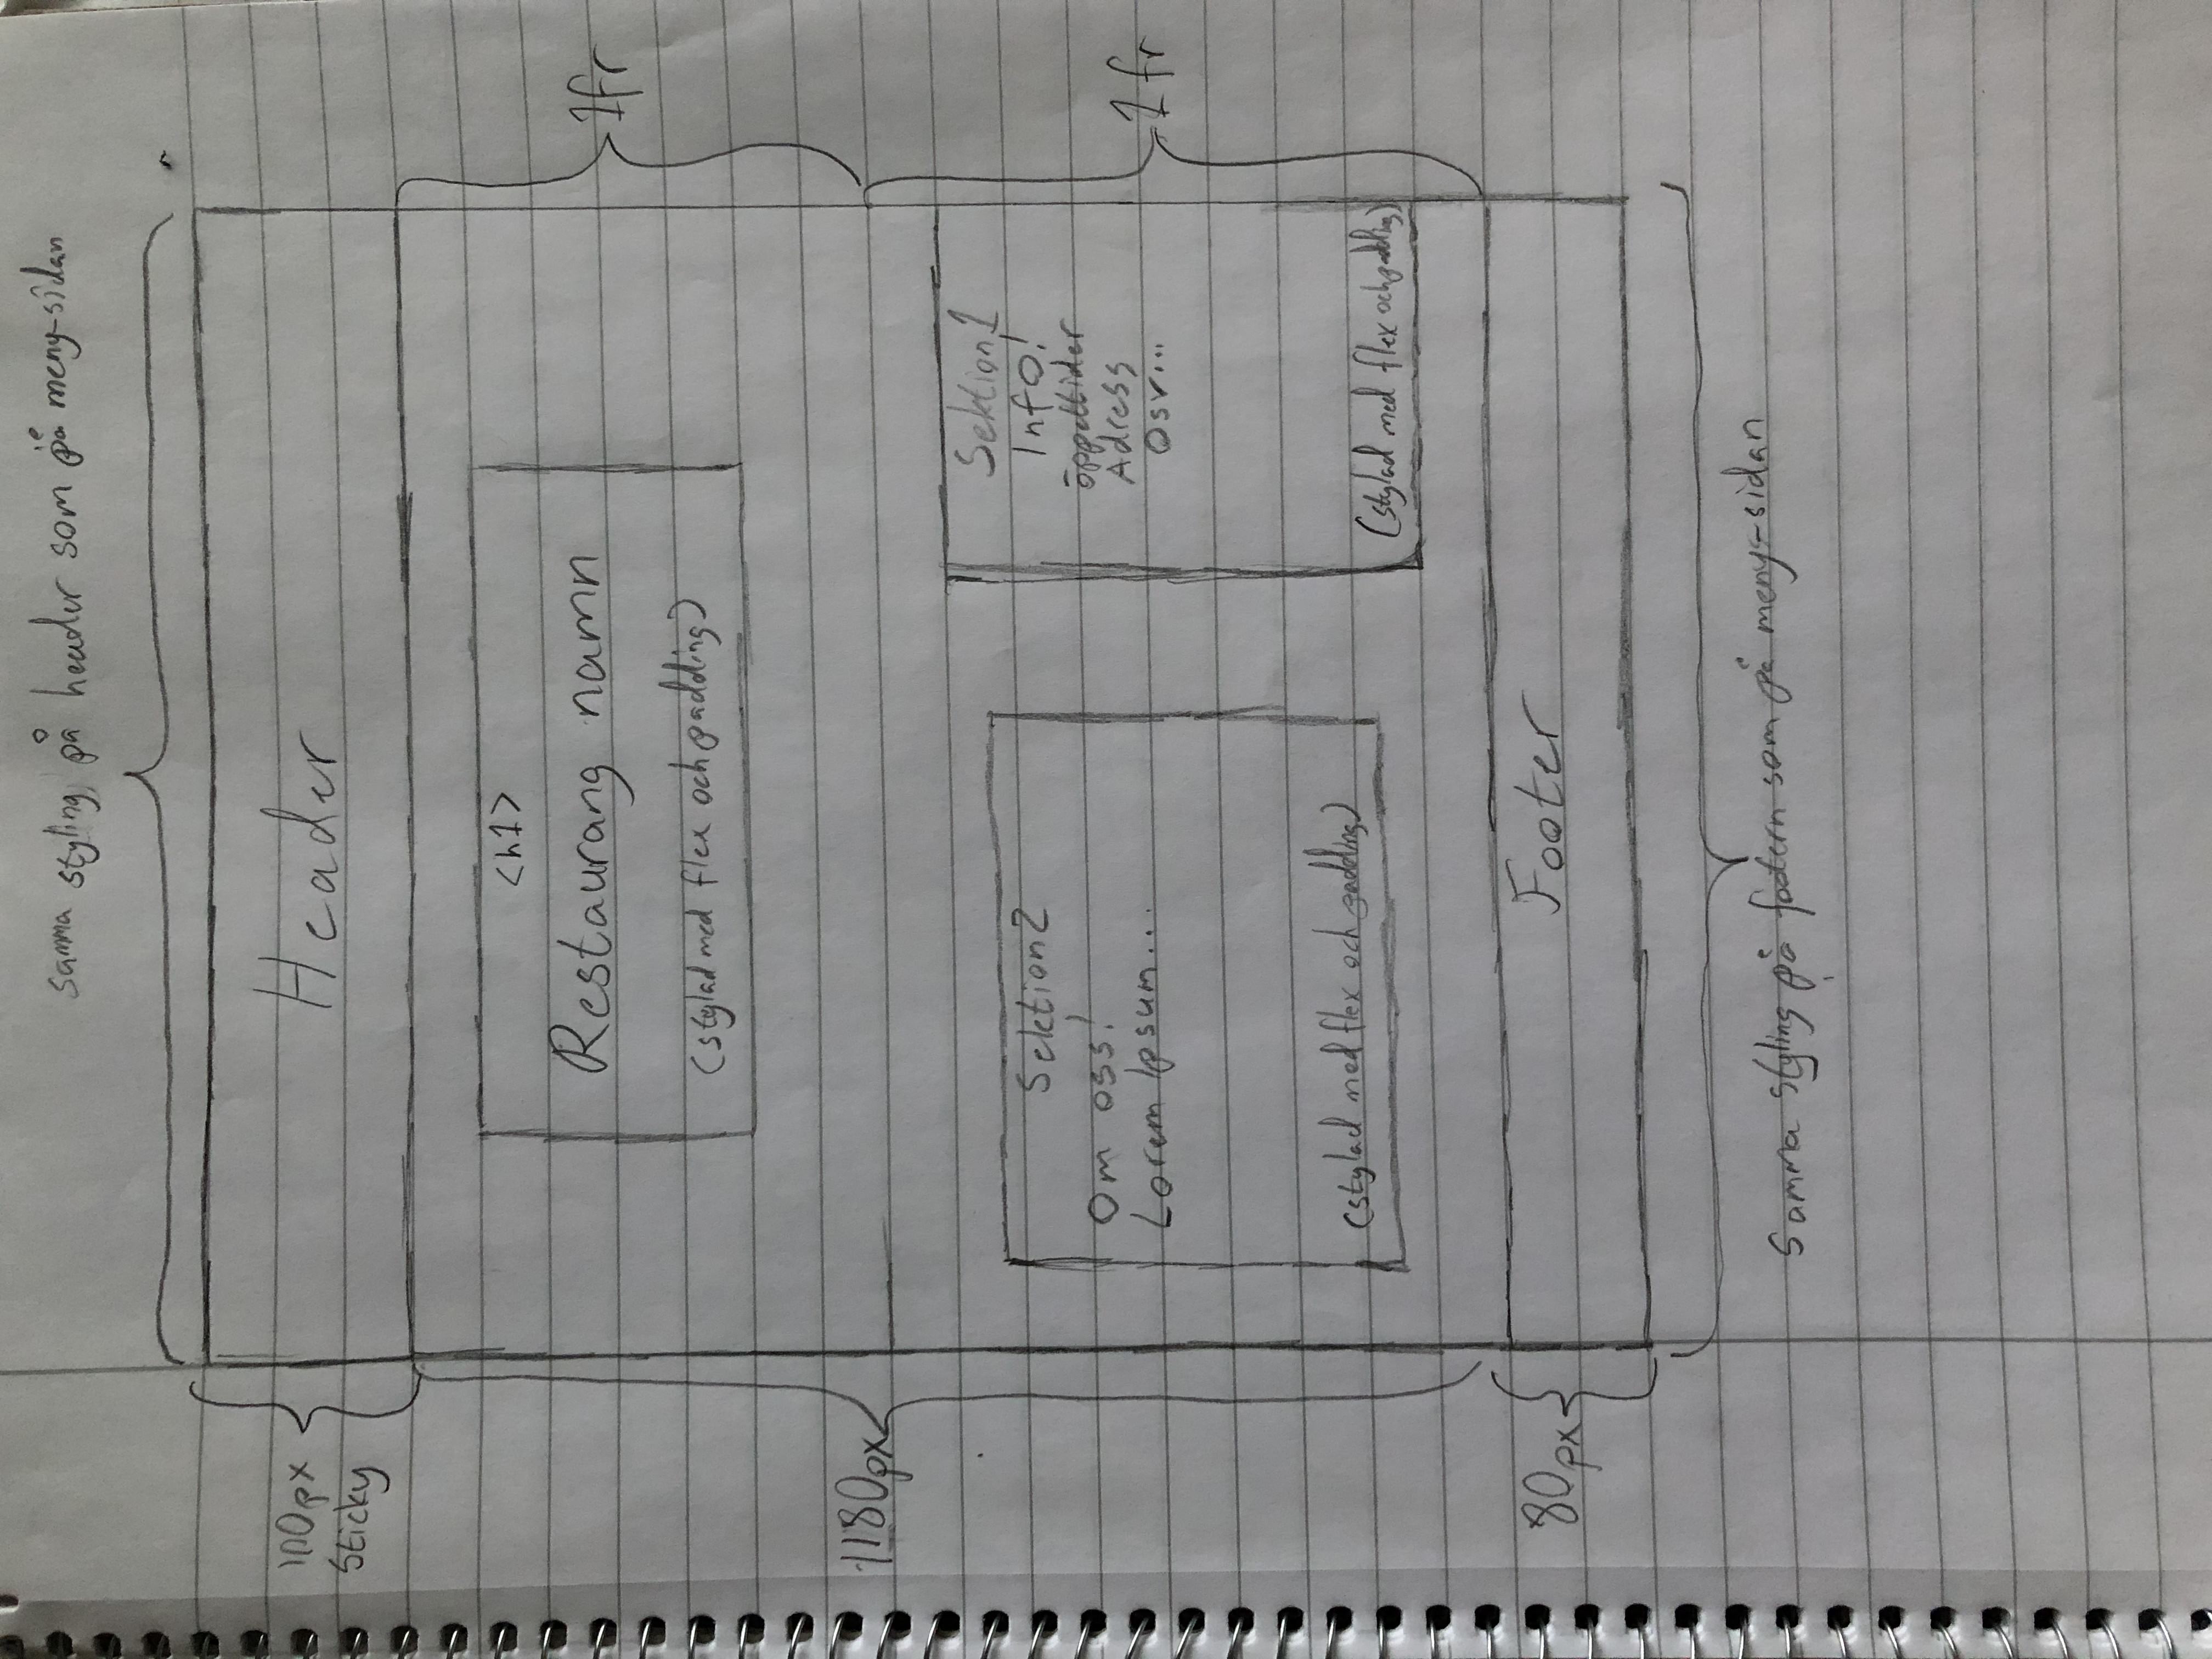 samma styling på header som på meny-sidan
100px
Sticky
Header
<h1>
Restaurang namn
(stylad med flex och padding)
1fr
1180px
Sektion 2
Om oss!
Lorem Ipsum...
(stylad med flex och padding)
Sektion 1
Info!
öppettider
Adress
Osv...
(stylad med flex och padding)
1fr
80px
Footer
Samma styling på footern som på meny-sidan